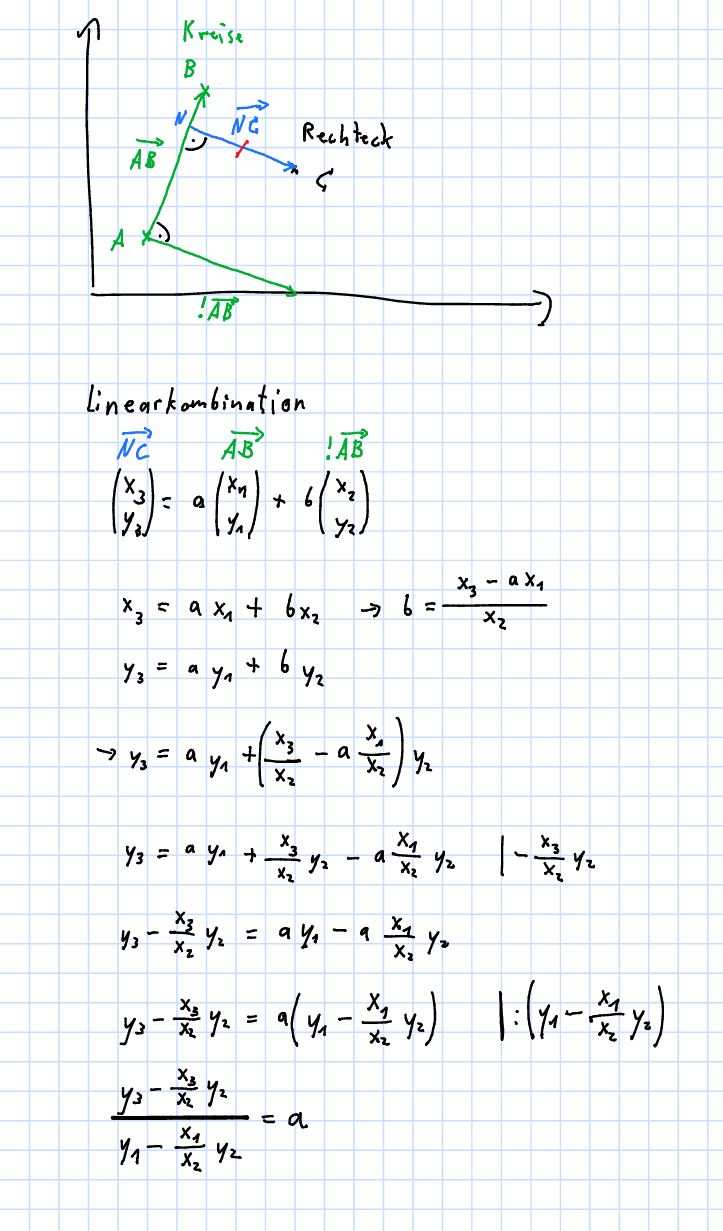 Kreise
B
N
NC
Rechteck
AB
C
A
!AB
Linearkombination
NC AB !AB
(x₃ y₃) = a (x₁ y₁) + b (x₂ y₂)
x₃ = a x₁ + b x₂ → b = (x₃ - a x₁)/x₂
y₃ = a y₁ + b y₂
→ y₃ = a y₁ + (x₃/x₂ - a x₁/x₂) y₂
y₃ = a y₁ + x₃/x₂ y₂ - a x₁/x₂ y₂ | - x₃/x₂ y₂
y₃ - x₃/x₂ y₂ = a y₁ - a x₁/x₂ y₂
y₃ - x₃/x₂ y₂ = a (y₁ - x₁/x₂ y₂) | : (y₁ - x₁/x₂ y₂)
(y₃ - x₃/x₂ y₂)/(y₁ - x₁/x₂ y₂) = a